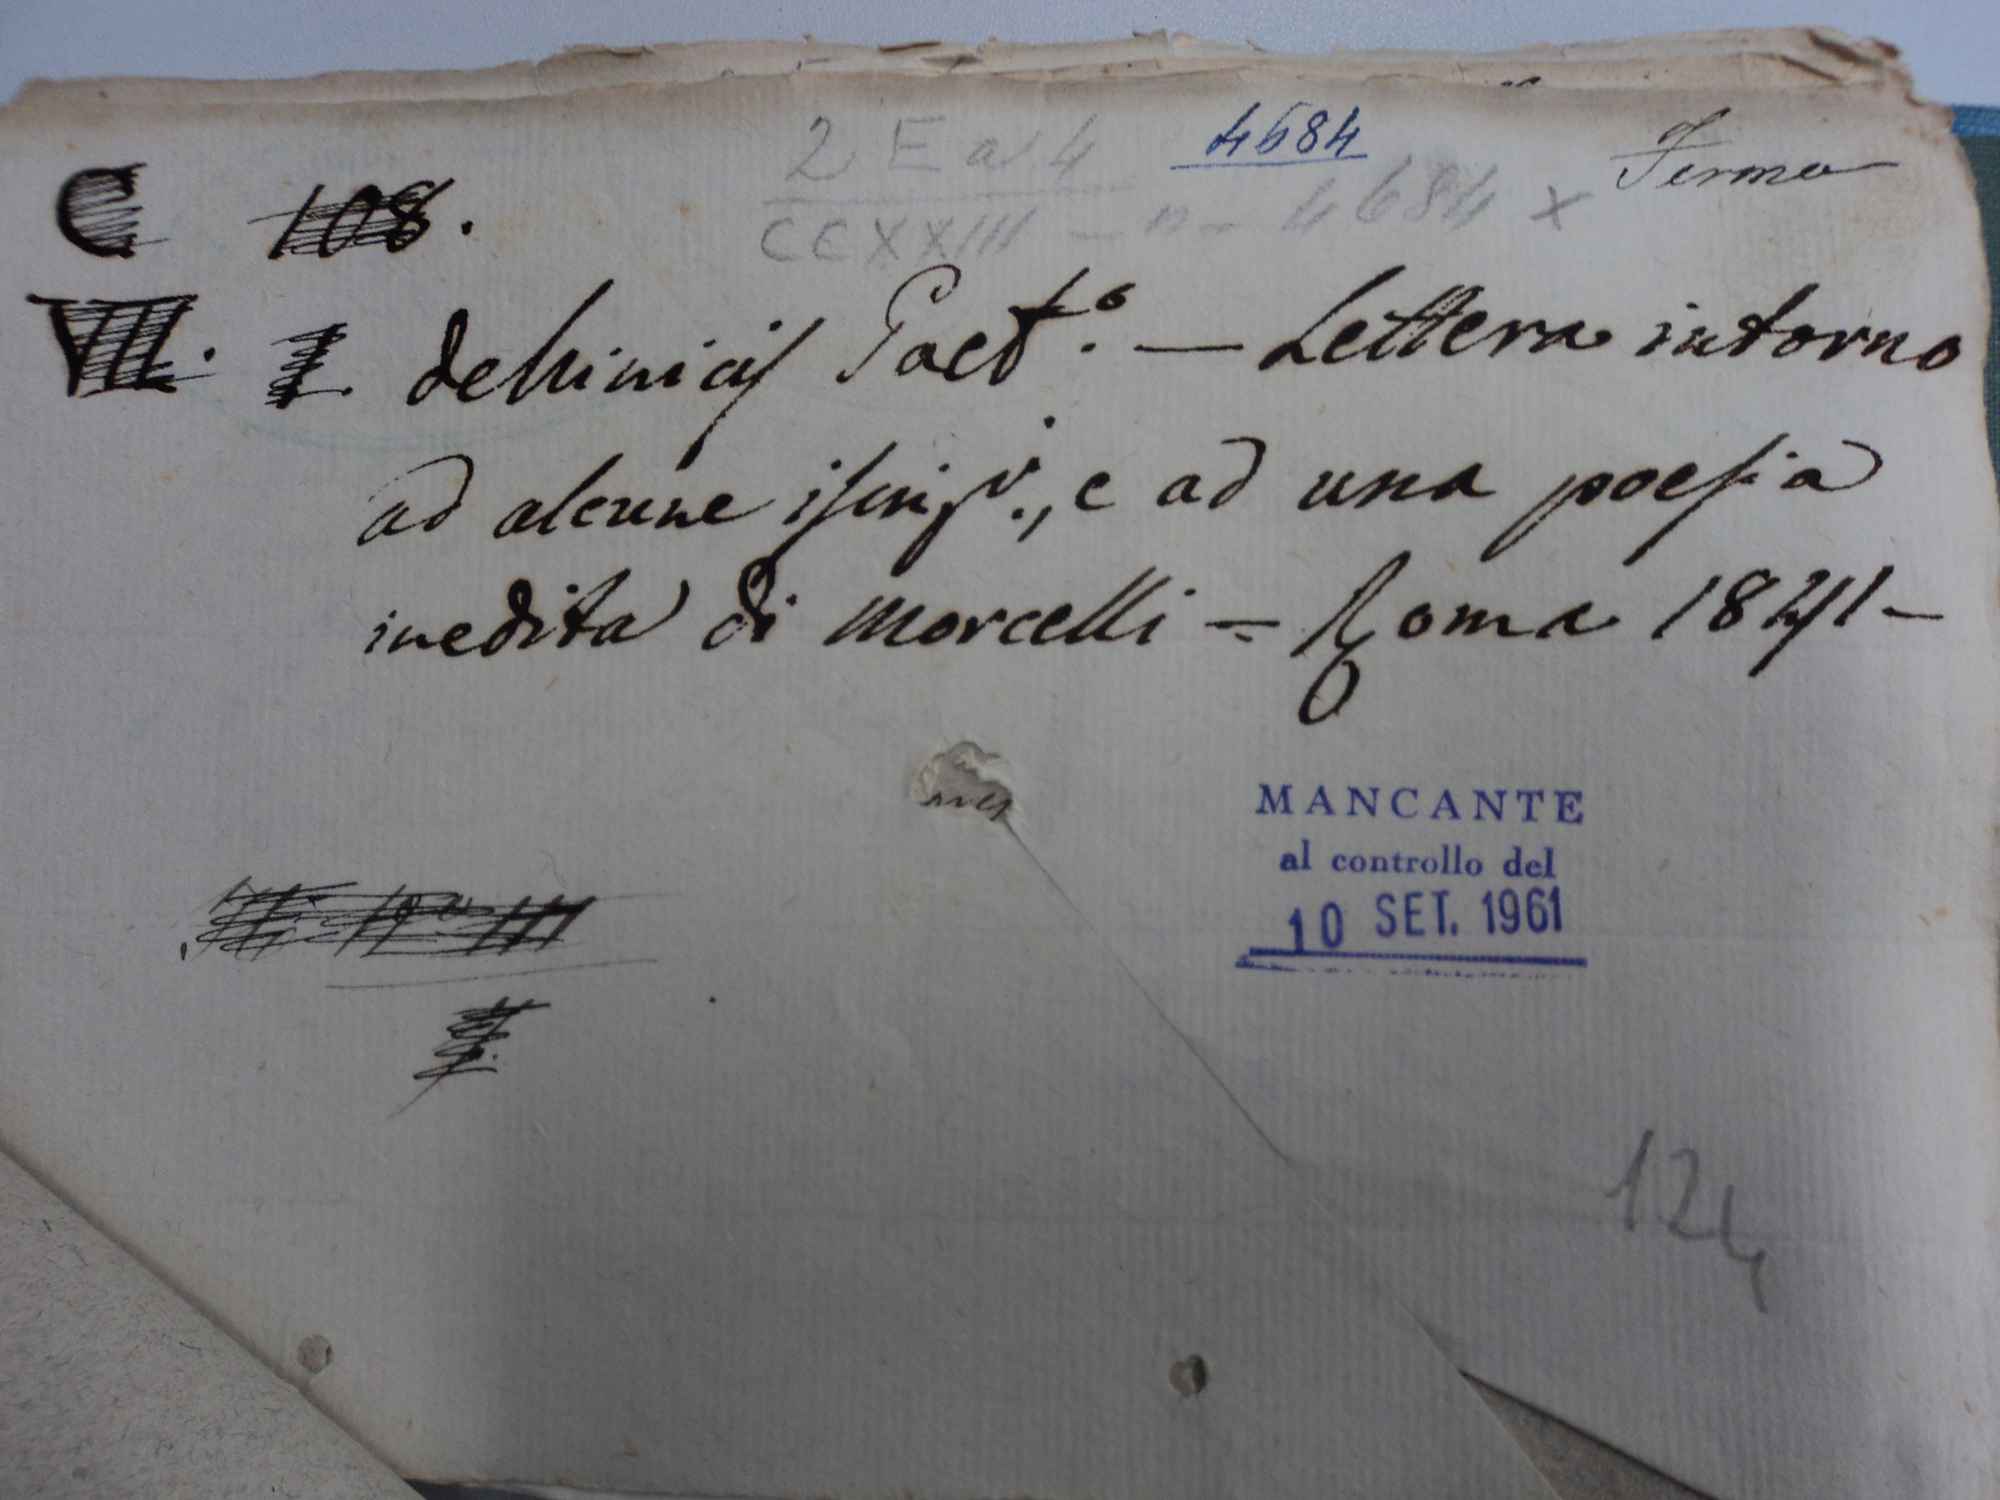 2 E a 4 4684 Fermo
C 108.
CCXXIII - n - 4684 x
VII. I. deMinicis Gaet.º — Lettera intorno
ad alcune iscriz.ⁱ, e ad una poesia
inedita di Morcelli = Roma 1841 -
MANCANTE
al controllo del
10 SET. 1961
124